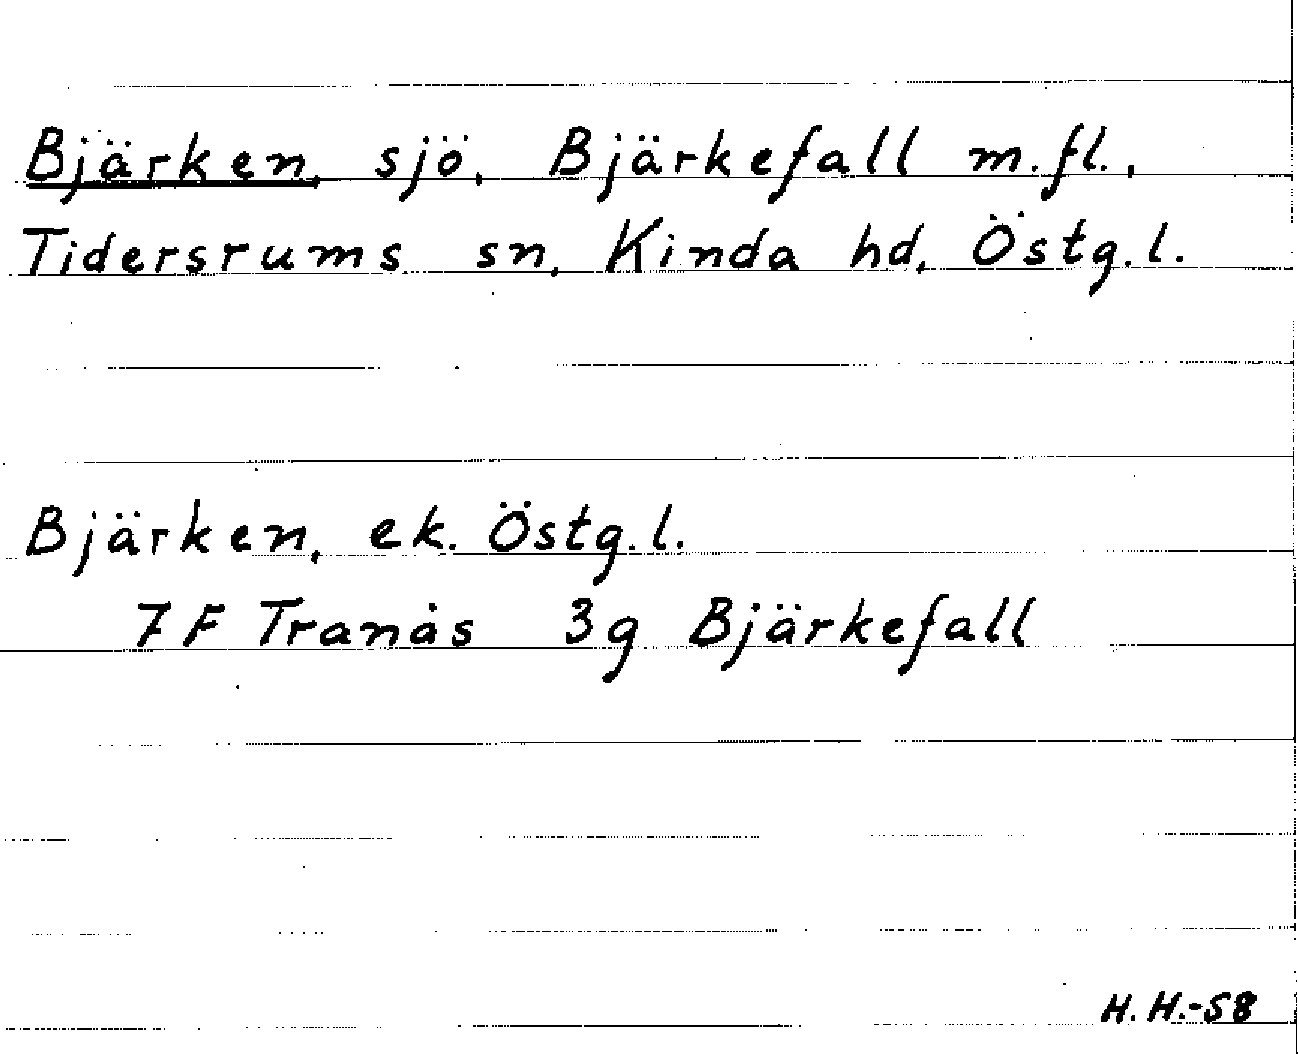 Bjärken, sjö, Bjärkefall m.fl.,
Tidersrums sn, Kinda hd, Östg.l.
Bjärken, ek. Östg.l.
7F Tranås 3g Bjärkefall
H.H.-58